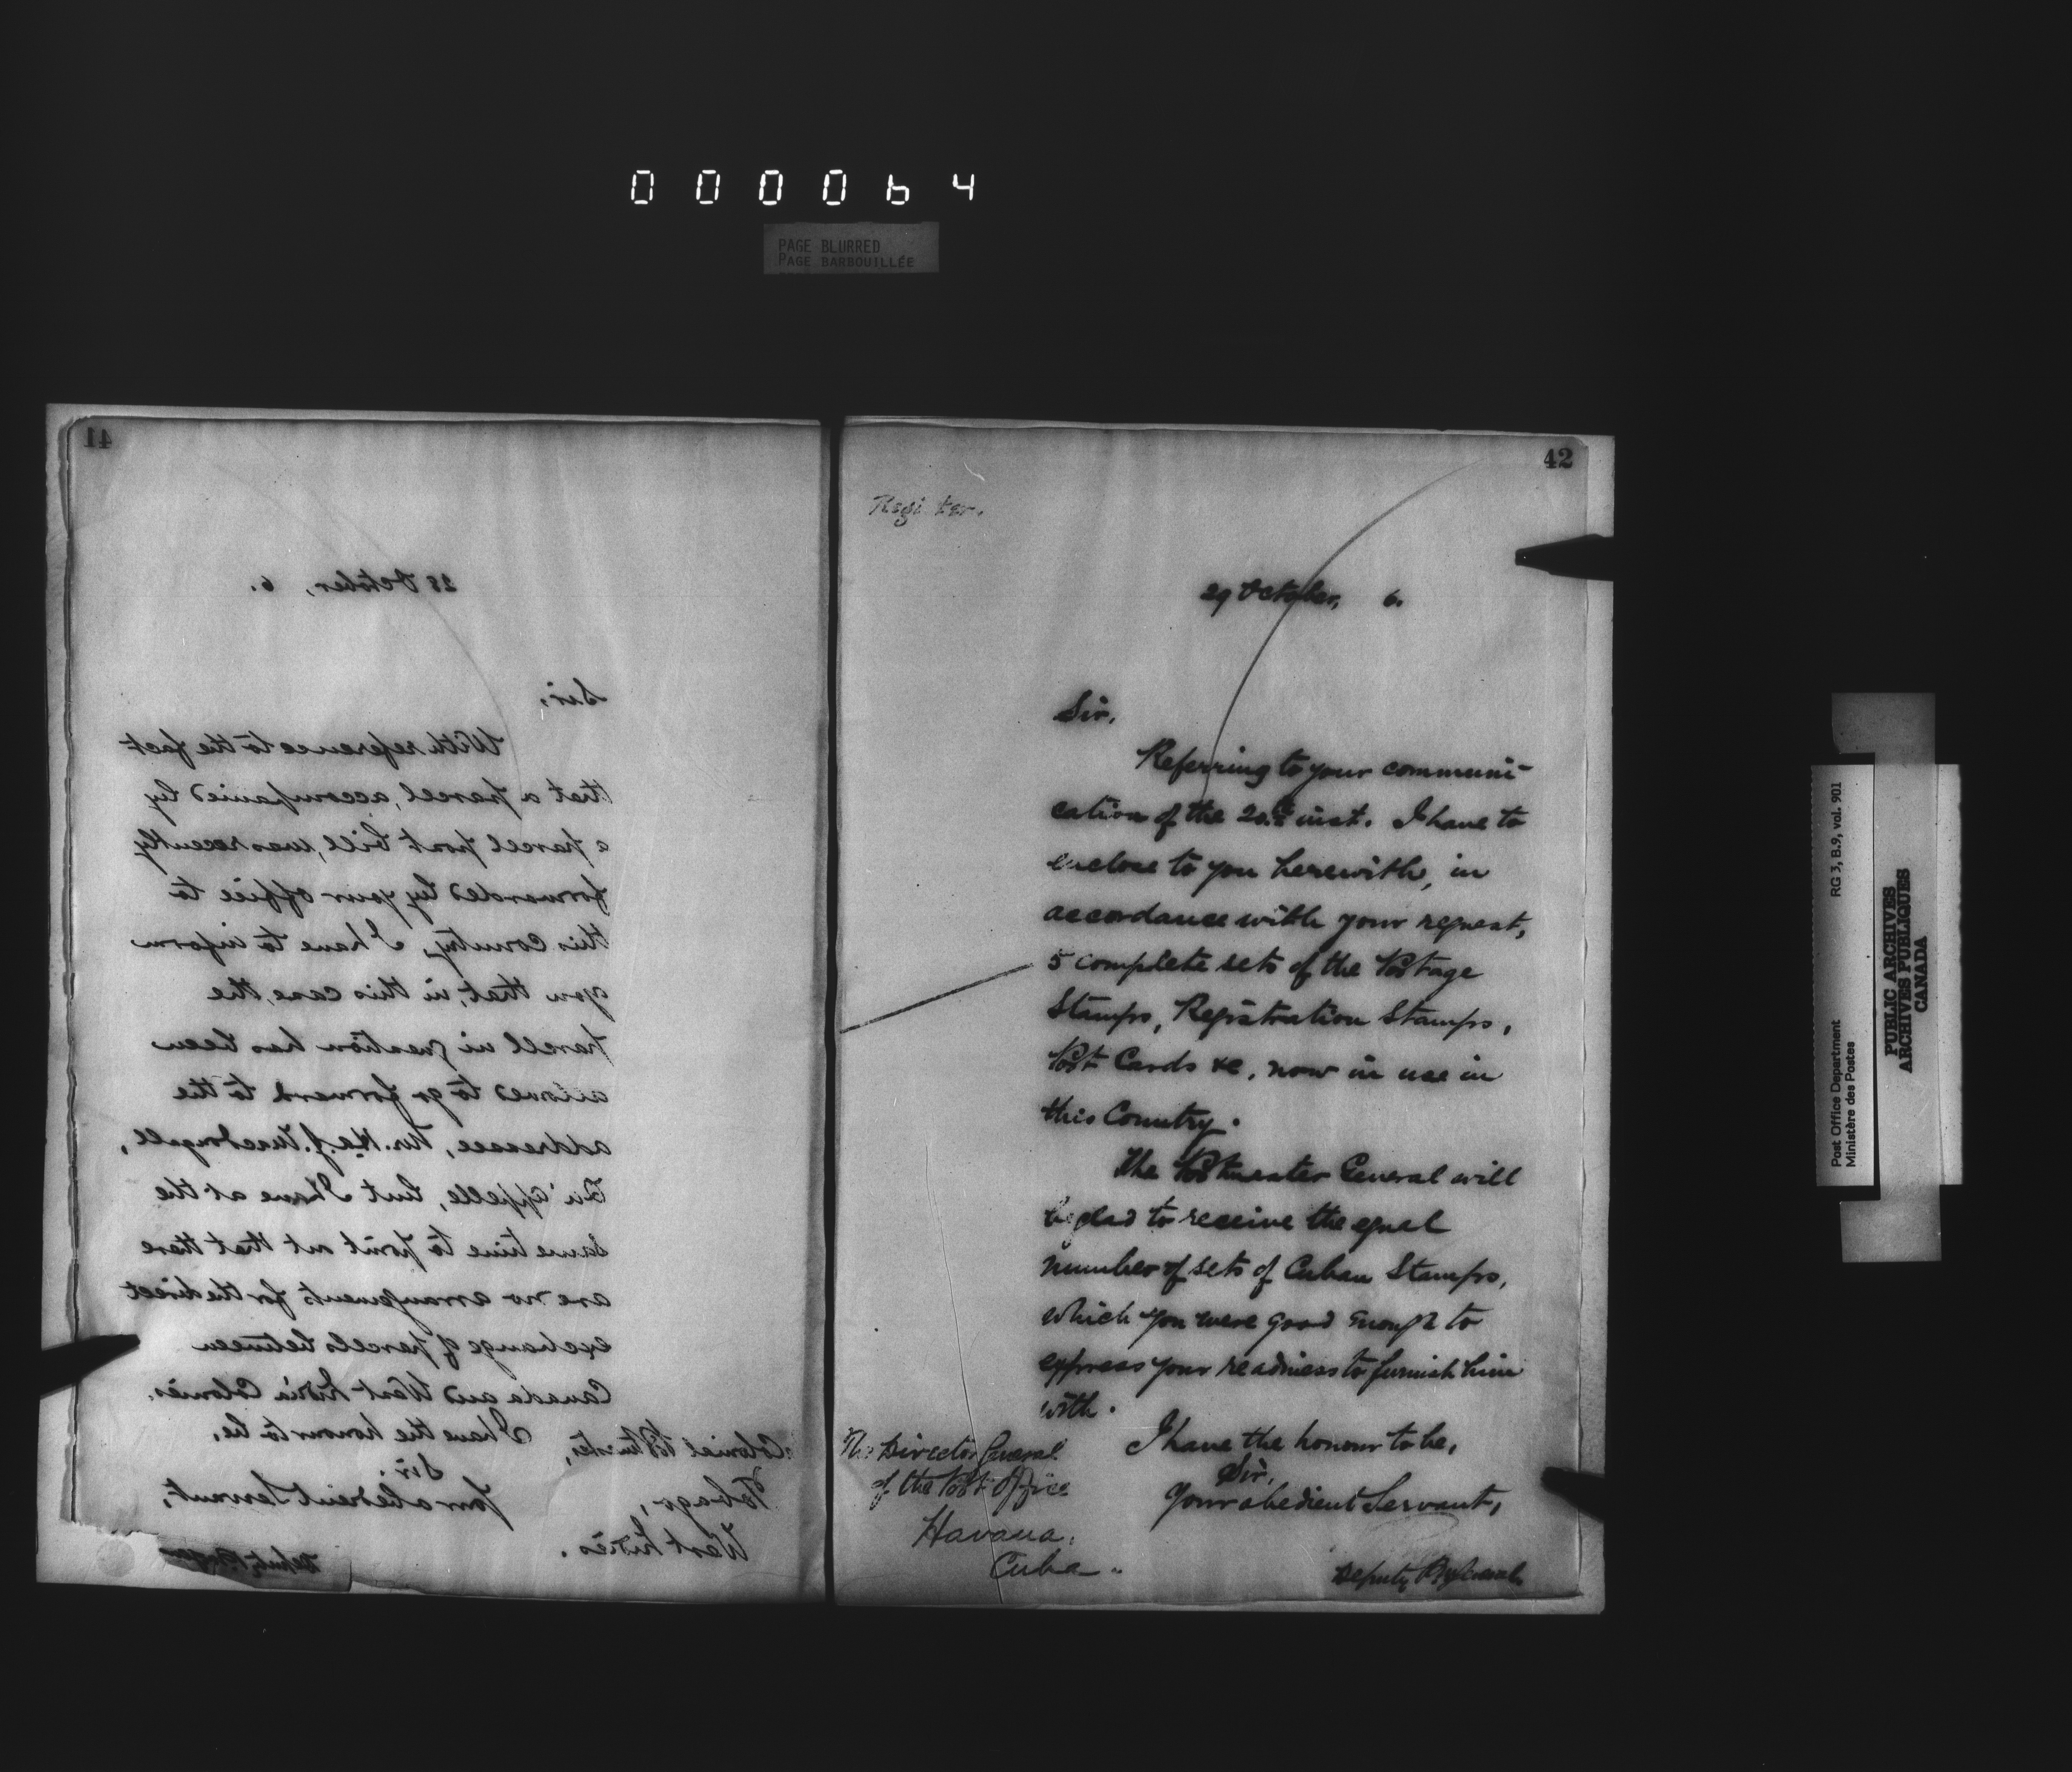 000064
PAGE BLURRED
PAGE BARBOUILLÉE
41
28 October, 6.
Sir,
With reference to the fact
that a parcel, accompanied by
a parcel post bill, was recently
forwarded by your office to
this Country, I have to inform
you that, in this case, the
parcel in question has been
allowed to go forward to the
addressee, Mr. J. Macdougall,
Qu'appelle, but I have at the
same time to point out that there
are no arrangements for the direct
exchange of parcels between
Canada and West India Colonies.
I have the honour to be,
Sir,
Your obedient Servant,
Colonial Postmaster,
Tobago,
West Indies.
Deputy
42
Regi ter.
29 October, 6.
Sir,
Referring to your communi-
cation of the 20th inst. I have to
enclose to you herewith, in
accordance with your request,
5 complete sets of the Postage
Stamps, Registration Stamps,
Post Cards &c, now in use in
this Country.
The Postmaster General will
be glad to receive the equal
number of sets of Cuban Stamps,
which you were good enough to
express your readiness to furnish him
with.
I have the honour to be,
Sir,
Your obedient Servant,
The Director General
of the Post Office
Havana,
Cuba
Deputy
Post Office Department RG 3, B.9, vol. 901
Ministère des Postes
PUBLIC ARCHIVES
ARCHIVES PUBLIQUES
CANADA